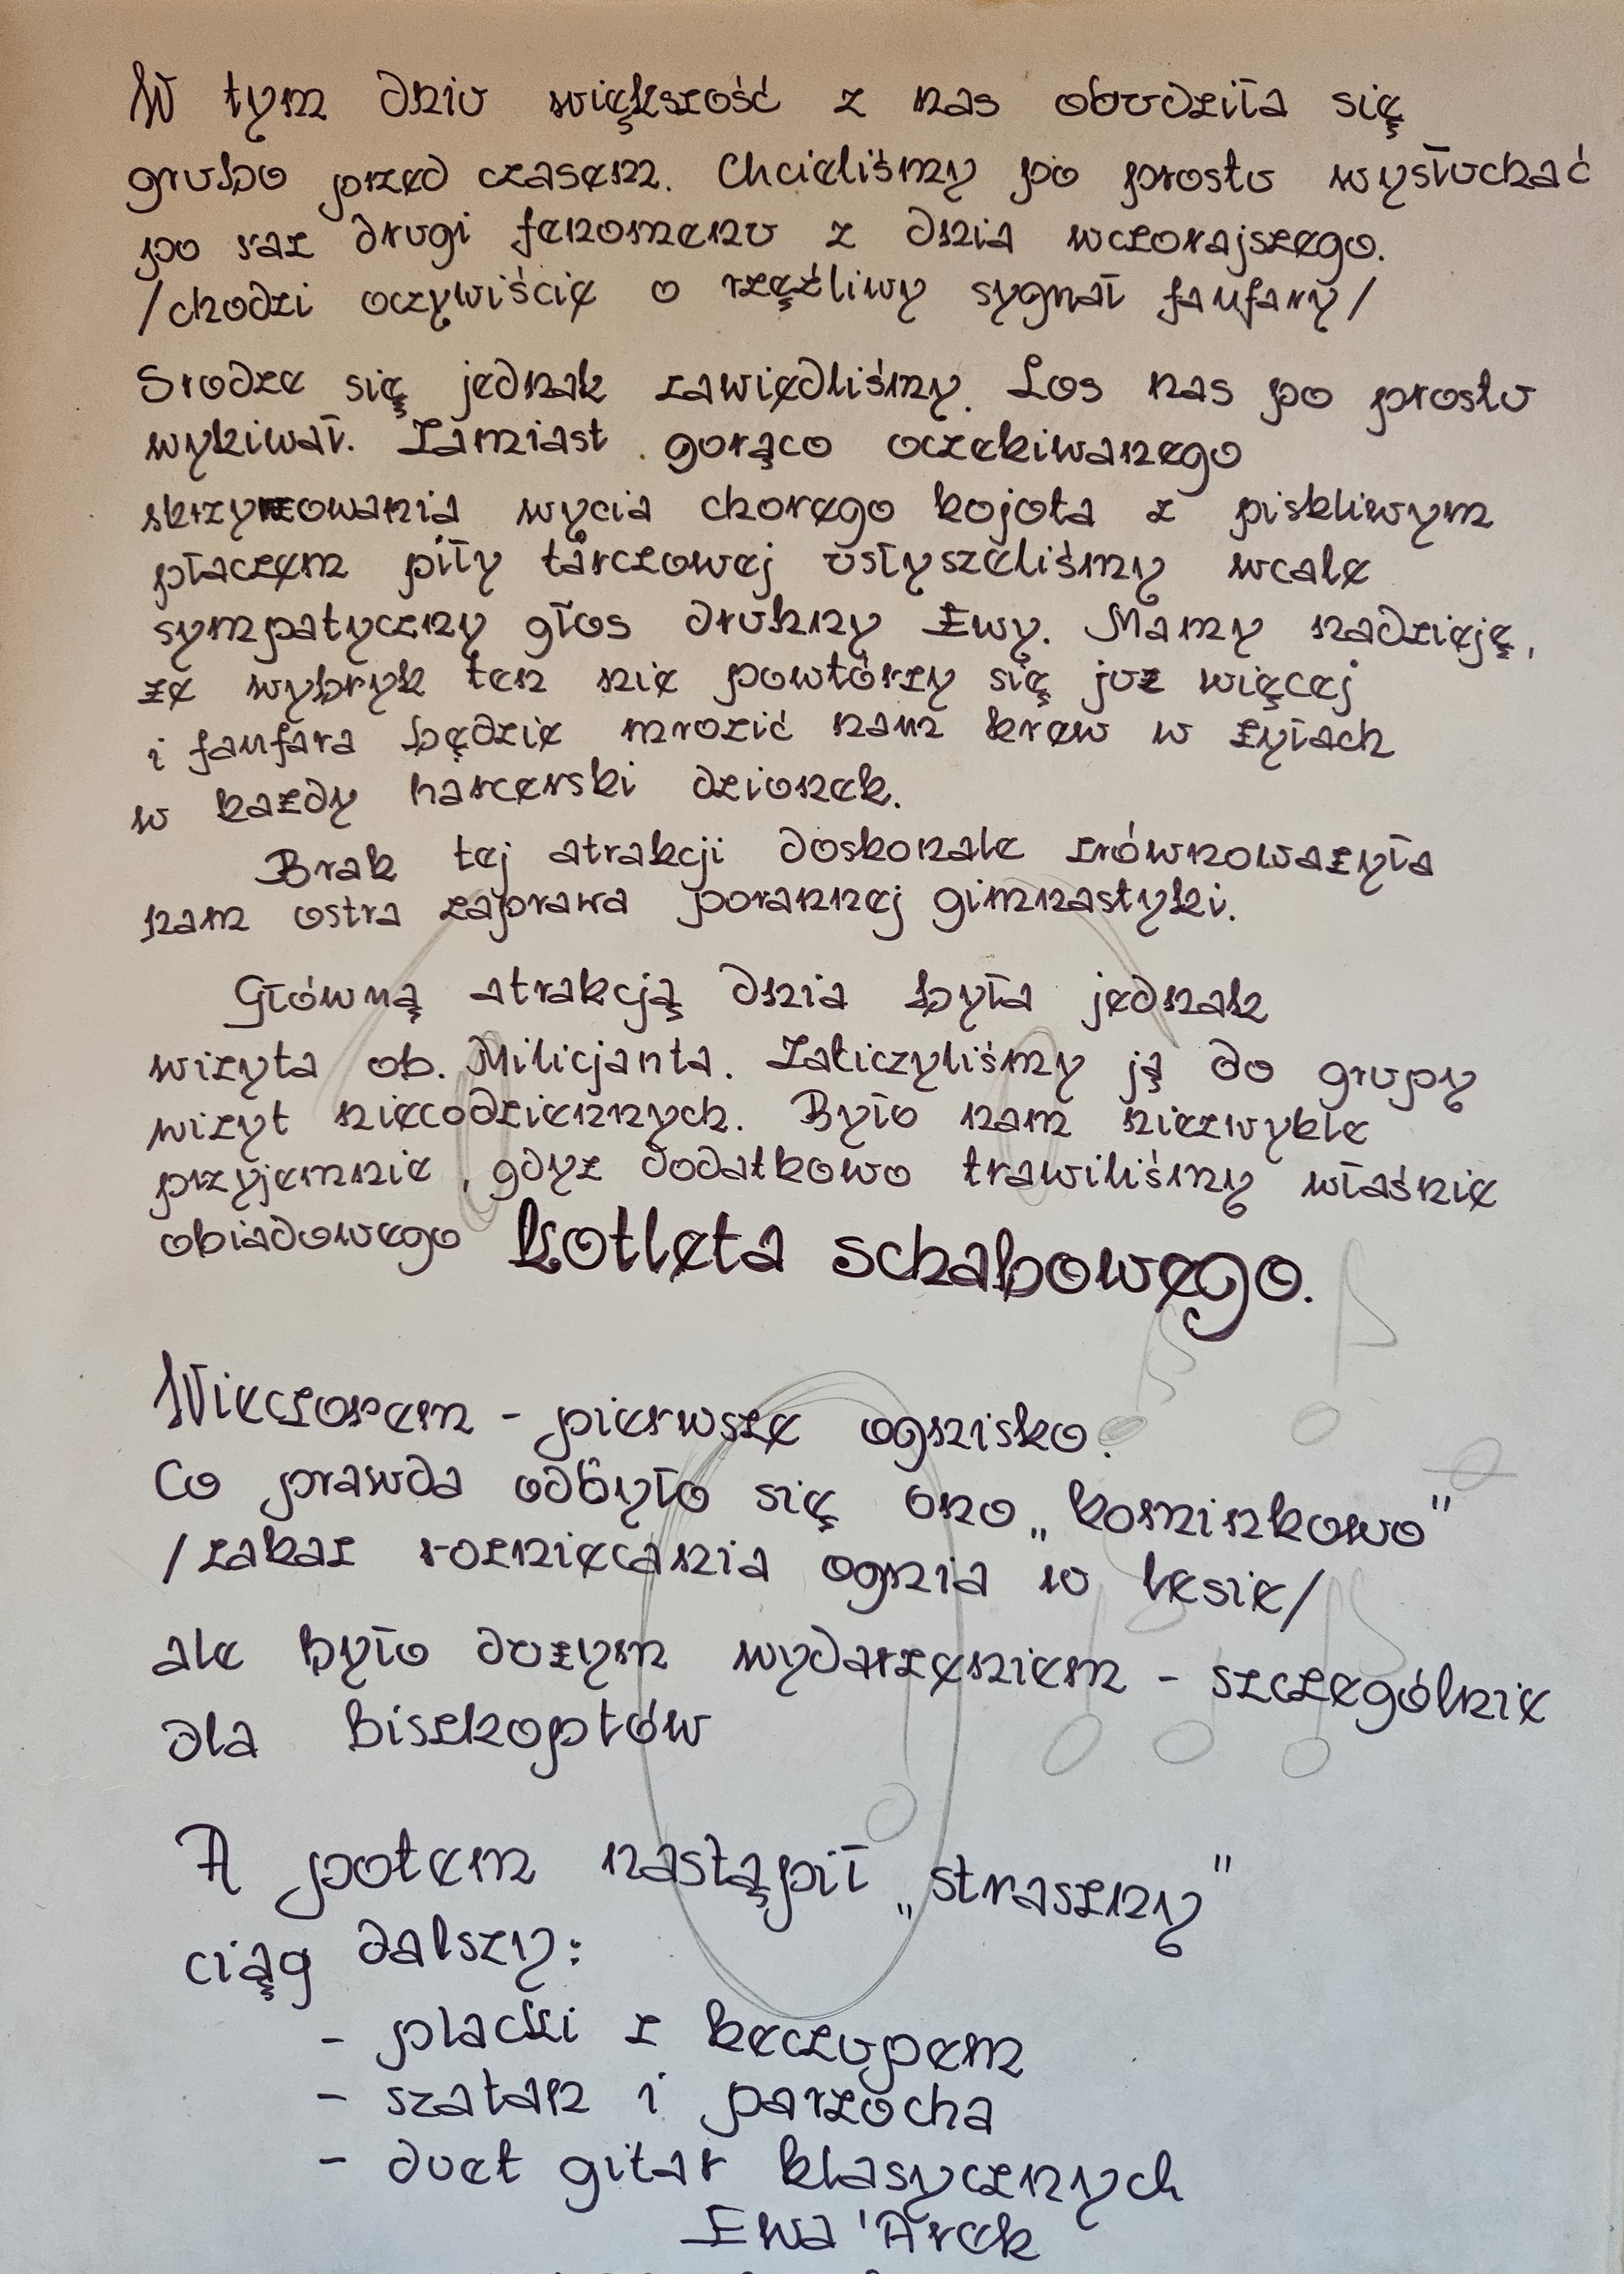 W tym dniu większość z nas obudziła się
grubo przed czasem. Chcieliśmy po prostu wysłuchać
po raz drugi fenomenu z dnia wczorajszego.
/chodzi oczywiście o rzęźliwy sygnał fanfary/
Srodze się jednak zawiedliśmy. Los nas po prostu
wykiwał. Zamiast gorąco oczekiwanego
skrzyżowania wycia chorego kojota z piskliwym
płaczem piły tarczowej usłyszeliśmy wcale
sympatyczny głos druhny Ewy. Mamy nadzieję,
że wybryk ten nie powtórzy się już więcej
i fanfara będzie mrozić nam krew w żyłach
w każdy harcerski dzionek.
Brak tej atrakcji doskonale zrównoważyła
nam ostra zaprawa porannej gimnastyki.
Główną atrakcją dnia była jednak
wizyta ob. Milicjanta. Zaliczyliśmy ją do grupy
wizyt niecodziennych. Było nam niezwykle
przyjemnie, gdyż dodatkowo trawiliśmy właśnie
obiadowego kotleta schabowego.
Wieczorem - pierwsze ognisko.
Co prawda odbyło się ono „kominkowo"
/zakaz rozniecania ognia w lesie/
ale było dużym wydarzeniem - szczególnie
dla Biszkoptów
A potem nastąpił „straszny"
ciąg dalszy:
- placki z keczupem
- szatan i parzocha
- duet gitar klasycznych
Ewa 'Arek